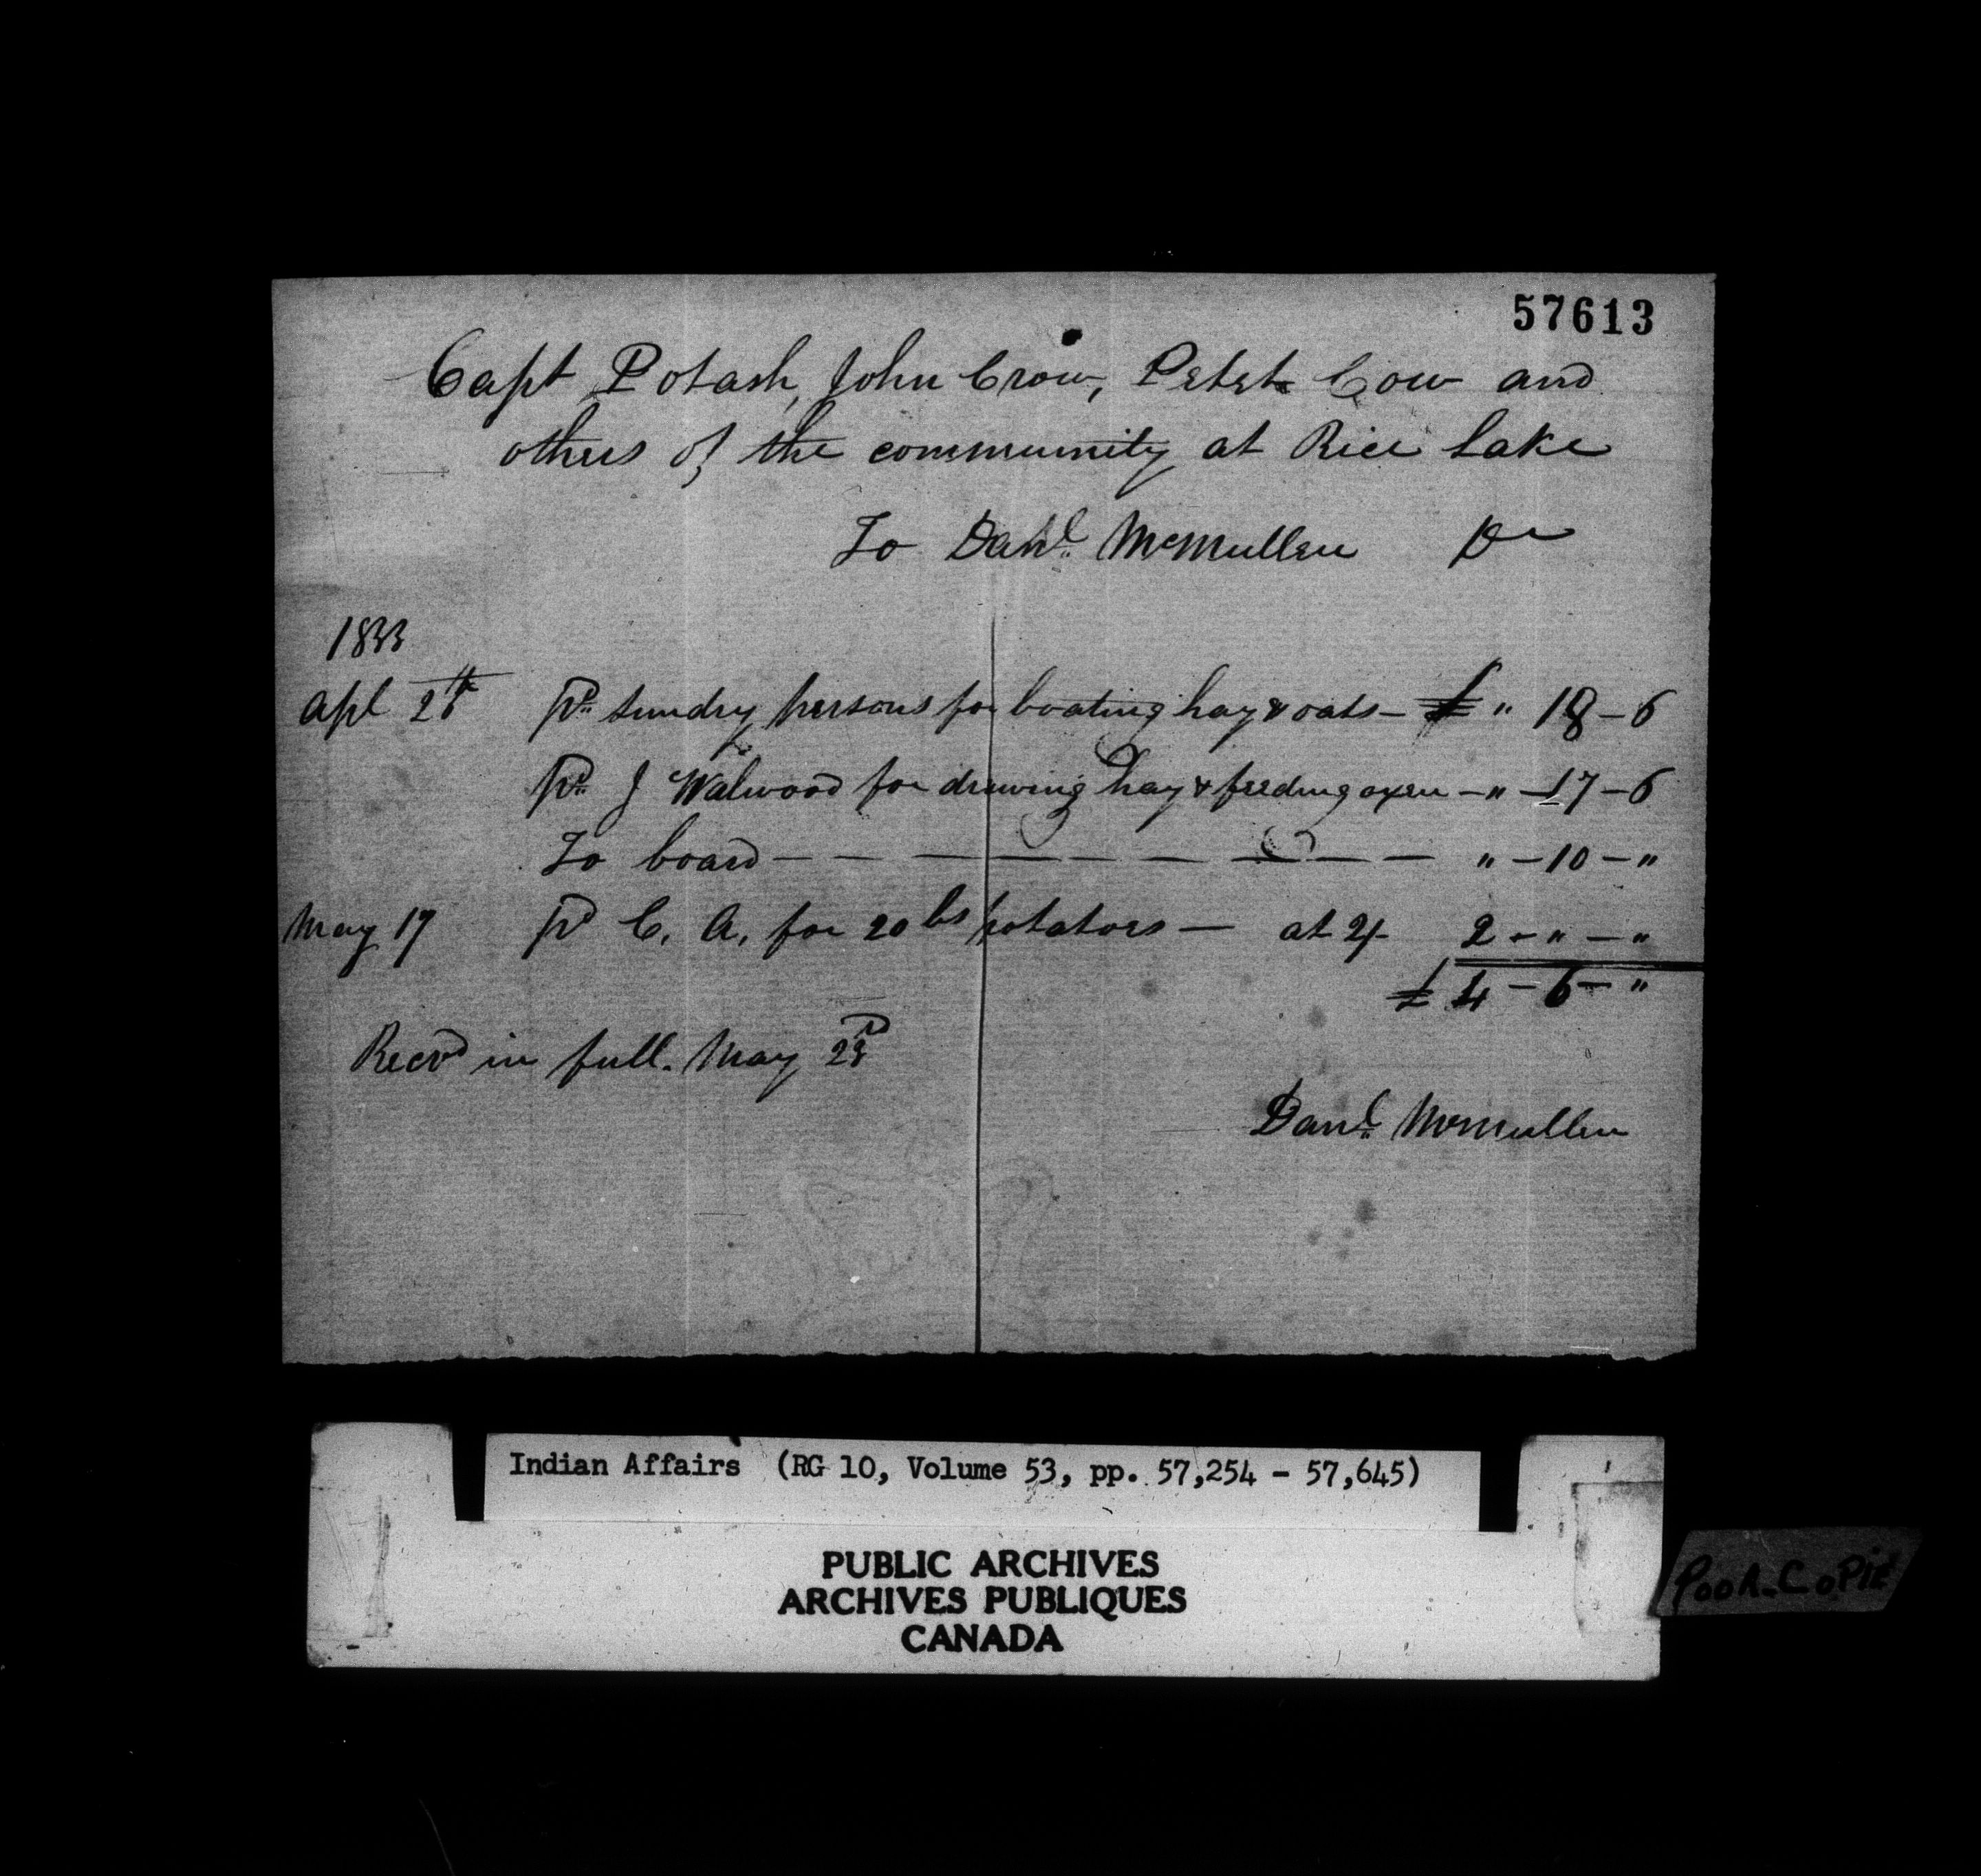 57613
Capt Potash, John Crow, Peter Cow and
others of the community at Rice Lake
To Danl. McMullen Dr
1833
Apl 26th pd. sundry persons for boating hay & oats — £ " 18 - 6
pd. J Walwood for drawing hay & feeding oxen — " — 17 - 6
To board — — — — — — — — — " — 10 — "
May 17 pd C. A. for 20 bs potatoes — at 2/- 2 - " — "
£ 4 - 6 - "
Recvd in full. May 23d
Danl. McMullen
Indian Affairs (RG 10, Volume 53, pp. 57,254 - 57,645)
PUBLIC ARCHIVES
ARCHIVES PUBLIQUES
CANADA
POOR COPIE